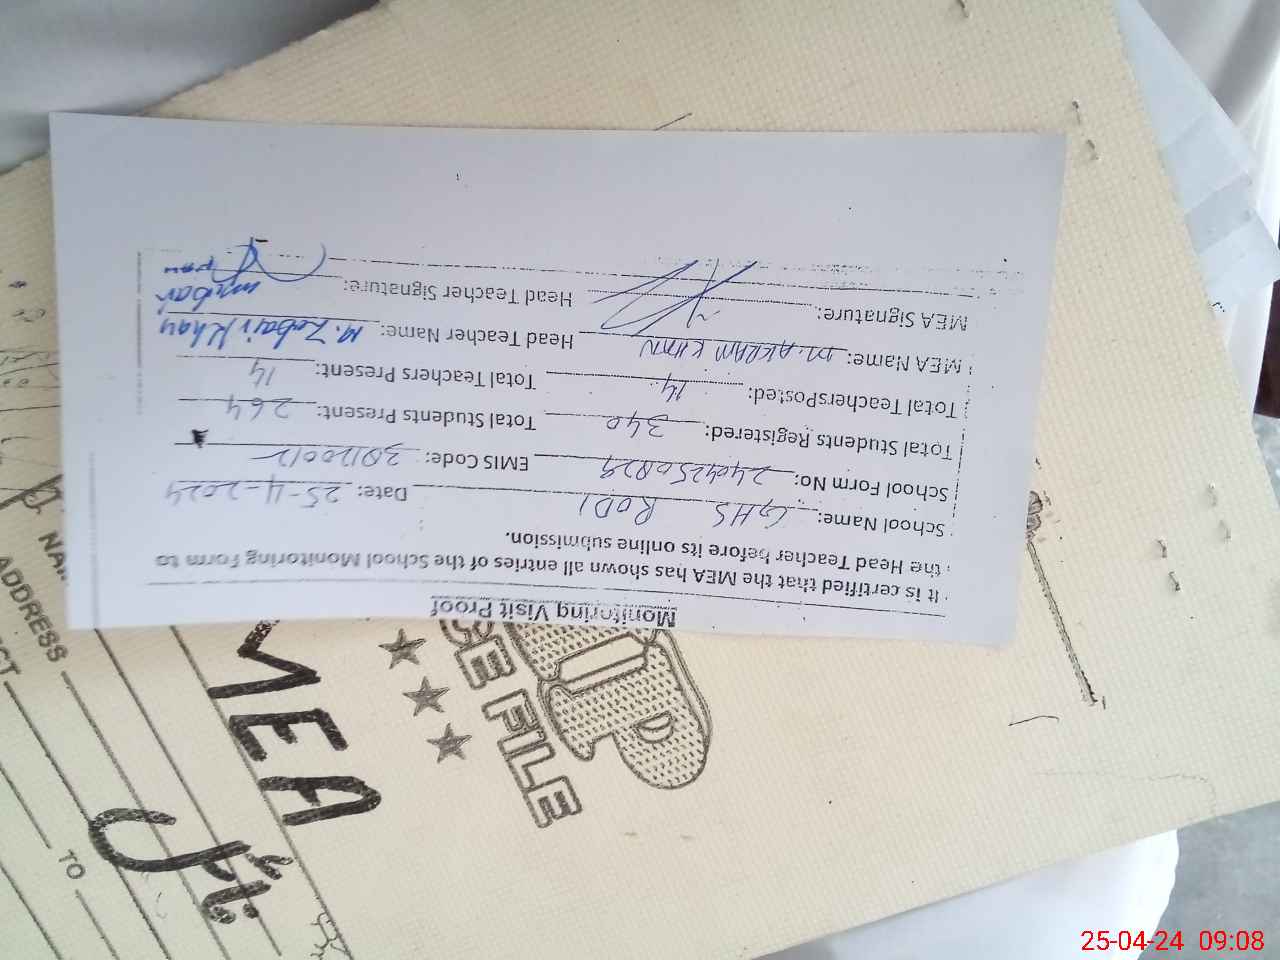 Monitoring Visit Proof
It is certified that the MEA has shown all entries of the School Monitoring Form to
the Head Teacher before its online submission.
School Name: GHS RODI Date: 25-4-2024
School Form No: EMIS Code:
Total Students Registered: 340 Total Students Present: 264
Total TeachersPosted: 14 Total Teachers Present: 14
MEA Name: M. AKRAM KHAN Head Teacher Name: M. Zubair Khan
MEA Signature: Head Teacher Signature:
FILE
MEA
ADDRESS
TO
25-04-24 09:08